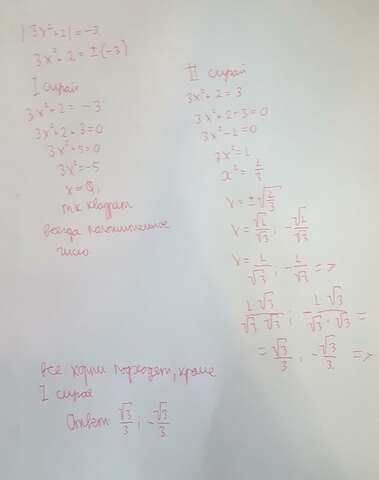 |3x²+2| = -3
3x²+2 = ±(-3)
I случай
3x²+2 = -3
3x²+2+3=0
3x²+5=0
3x²=-5
x = Q,
т.к квадрат
всегда положительное
число
II случай
3x²+2 = 3
3x²+2-3=0
3x²-1=0
3x²=1
x² = 1/3
x = ±√(1/3)
x = √1/√3 ; -√1/√3
x = 1/√3 ; -1/√3 =>
1·√3/√3·√3 ; -1·√3/√3·√3 =
= √3/3 ; -√3/3 =>
все корни подходят, кроме
I случая
Ответ √3/3 ; -√3/3